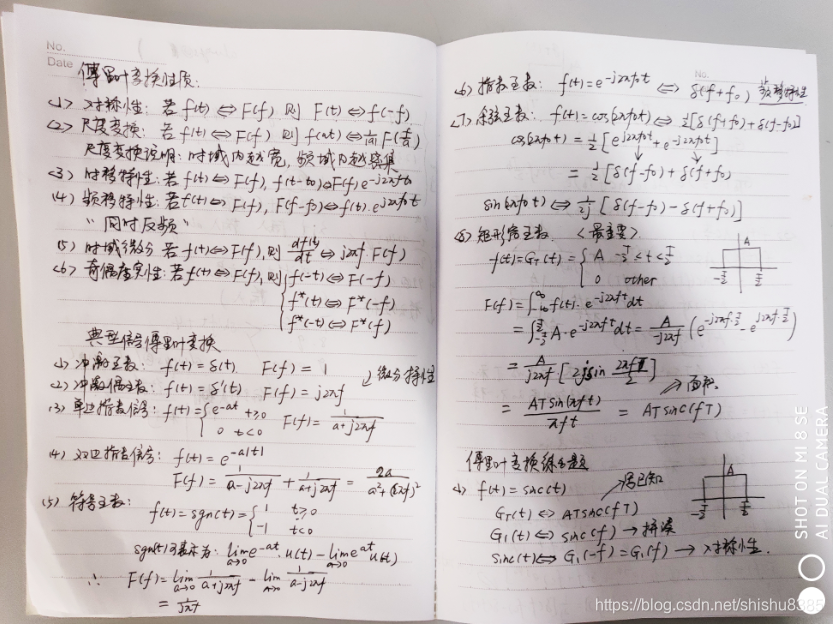 No.
Date
傅里叶变换性质:
(1) 对称性: 若 f(t) ⇔ F(f) 则 F(t) ⇔ f(-f)
(2) 尺度变换: 若 f(t) ⇔ F(f) 则 f(at) ⇔ 1/|a| F(f/a)
尺度变换说明: 时域内越宽, 频域内越密集
(3) 时移特性: 若 f(t) ⇔ F(f), f(t-t0) ⇔ F(f) e^-j2πft0
(4) 频移特性: 若 f(t) ⇔ F(f), F(f-f0) ⇔ f(t)·e^j2πf0t
"同时反频"
(5) 时域微分 若 f(t) ⇔ F(f), 则 df(t)/dt ⇔ j2πf·F(f)
(6) 奇偶虚实性: 若 f(t) ⇔ F(f), 则 { f(-t) ⇔ F(-f)
f*(t) ⇔ F*(-f)
f*(-t) ⇔ F*(f)
典型信号傅里叶变换
(1) 冲激函数: f(t) = δ(t) F(f) = 1
(2) 冲激偶函数: f(t) = δ'(t) F(f) = j2πf 微分特性
(3) 单边指数信号: f(t) = { e^-at t≥0 F(f) = 1/(a+j2πf)
0 t<0
(4) 双边指数信号: f(t) = e^-a|t|
F(f) = 1/(a-j2πf) + 1/(a+j2πf) = 2a/(a²+(2πf)²)
(5) 符号函数:
f(t) = sgn(t) = { 1 t≥0
-1 t<0
sgn(t)可表示为: lim a→0 e^-at·u(t) - lim a→0 e^at u(t)
∴ F(f) = lim a→0 1/(a+j2πf) - lim a→0 1/(a-j2πf)
= 1/jπf
No.
(6) 指数函数: f(t) = e^-j2πf0t ⇔ δ(f+f0) 频移特性
(7) 余弦函数: f(t) = cos(2πf0t) ⇔ 1/2[δ(f+f0)+δ(f-f0)]
cos(2πf0t) = 1/2 [e^j2πf0t + e^-j2πf0t]
= 1/2 [δ(f-f0) + δ(f+f0)
sin(2πf0t) ⇔ 1/2j [δ(f-f0) - δ(f+f0)]
(8) 矩形窗函数. <最重要>
f(t) = GT(t) = { A -T/2 < t < T/2
0 other
A
-T/2 T/2
F(f) = ∫-∞^∞ f(t)·e^-j2πft dt
= ∫-T/2^T/2 A·e^-j2πft dt = A/-j2πf (e^-j2πf·T/2 - e^j2πf·T/2)
= A/j2πf [2j sin 2πfT/2]
= AT sin(πft)/πft = AT sinc(fT) 面积.
傅里叶变换练习题
(1) f(t) = sinc(t) 已知
GT(t) ⇔ AT sinc(fT)
G1(t) ⇔ sinc(f) → 拼凑
sinc(t) ⇔ G1(-f) = G1(f) → 对称性.
A
-T/2 T/2
SHOT ON MI 8 SE
AI DUAL CAMERA
https://blog.csdn.net/shishu8385